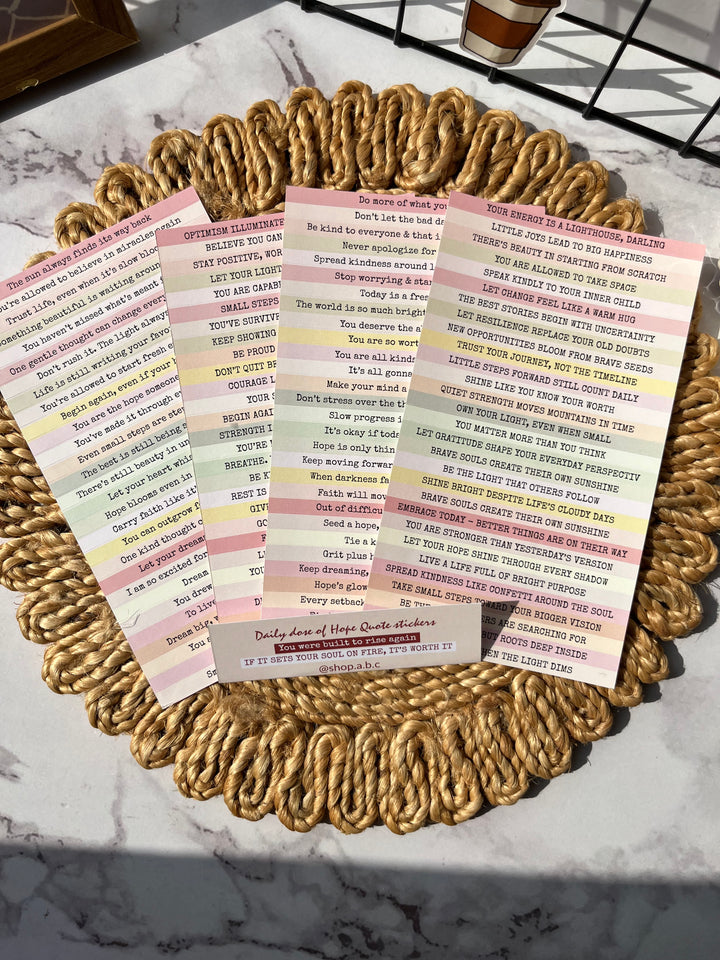 The sun always finds its way back
You're allowed to believe in miracles again
Trust life, even when it's slow bloo
Something beautiful is waiting around
You haven't missed what's meant
One gentle thought can change every
Don't rush it. The light always
Life is still writing your favor
You're allowed to start fresh e
Begin again, even if your
You are the hope someone
You've made it through ev
Even small steps are ste
The best is still being
There's still beauty in un
Let your heart whis
Hope blooms even in
Carry faith like it
You can outgrow
One kind thought c
Let your dreams
I am so excited for
Dream
You drew
To live
Dream big
You are
Small
OPTIMISM ILLUMINAT
BELIEVE YOU CAN
STAY POSITIVE, WOR
LET YOUR LIGHT
YOU ARE CAPAB
SMALL STEPS
YOU'VE SURVIVE
KEEP SHOWING
BE PROUD
DON'T QUIT BE
COURAGE L
YOUR S
BEGIN AGAI
STRENGTH I
YOU'RE
BREATHE,
BE K
REST IS
GIV
GO
F
Do more of what yo
Don't let the bad da
Be kind to everyone & that i
Never apologize for
Spread kindness around
Stop worrying & star
Today is a fres
The world is so much brigh
You deserve the a
You are so wor
You are all kinds
It's all gonna
Make your mind a
Don't stress over the th
Slow progress i
It's okay if today
Hope is only thin
Keep moving forwar
When darkness fa
Faith will mov
Out of difficu
Seed a hope,
Tie a k
Grit plus h
Keep dreaming,
Hope's glow
Every setbac
YOUR ENERGY IS A LIGHTHOUSE, DARLING
LITTLE JOYS LEAD TO BIG HAPPINESS
THERE'S BEAUTY IN STARTING FROM SCRATCH
YOU ARE ALLOWED TO TAKE SPACE
SPEAK KINDLY TO YOUR INNER CHILD
LET CHANGE FEEL LIKE A WARM HUG
THE BEST STORIES BEGIN WITH UNCERTAINTY
LET RESILIENCE REPLACE YOUR OLD DOUBTS
NEW OPPORTUNITIES BLOOM FROM BRAVE SEEDS
TRUST YOUR JOURNEY, NOT THE TIMELINE
LITTLE STEPS FORWARD STILL COUNT DAILY
SHINE LIKE YOU KNOW YOUR WORTH
QUIET STRENGTH MOVES MOUNTAINS IN TIME
OWN YOUR LIGHT, EVEN WHEN SMALL
YOU MATTER MORE THAN YOU THINK
LET GRATITUDE SHAPE YOUR EVERYDAY PERSPECTIV
BRAVE SOULS CREATE THEIR OWN SUNSHINE
BE THE LIGHT THAT OTHERS FOLLOW
SHINE BRIGHT DESPITE LIFE'S CLOUDY DAYS
BRAVE SOULS CREATE THEIR OWN SUNSHINE
EMBRACE TODAY - BETTER THINGS ARE ON THEIR WAY
YOU ARE STRONGER THAN YESTERDAY'S VERSION
LET YOUR HOPE SHINE THROUGH EVERY SHADOW
LIVE A LIFE FULL OF BRIGHT PURPOSE
SPREAD KINDNESS LIKE CONFETTI AROUND THE SOUL
TAKE SMALL STEPS TOWARD YOUR BIGGER VISION
BE THE ERS ARE SEARCHING FOR
BUT ROOTS DEEP INSIDE
HEN THE LIGHT DIMS
Daily dose of Hope Quote stickers
You were built to rise again
IF IT SETS YOUR SOUL ON FIRE, IT'S WORTH IT
@shop.a.b.c